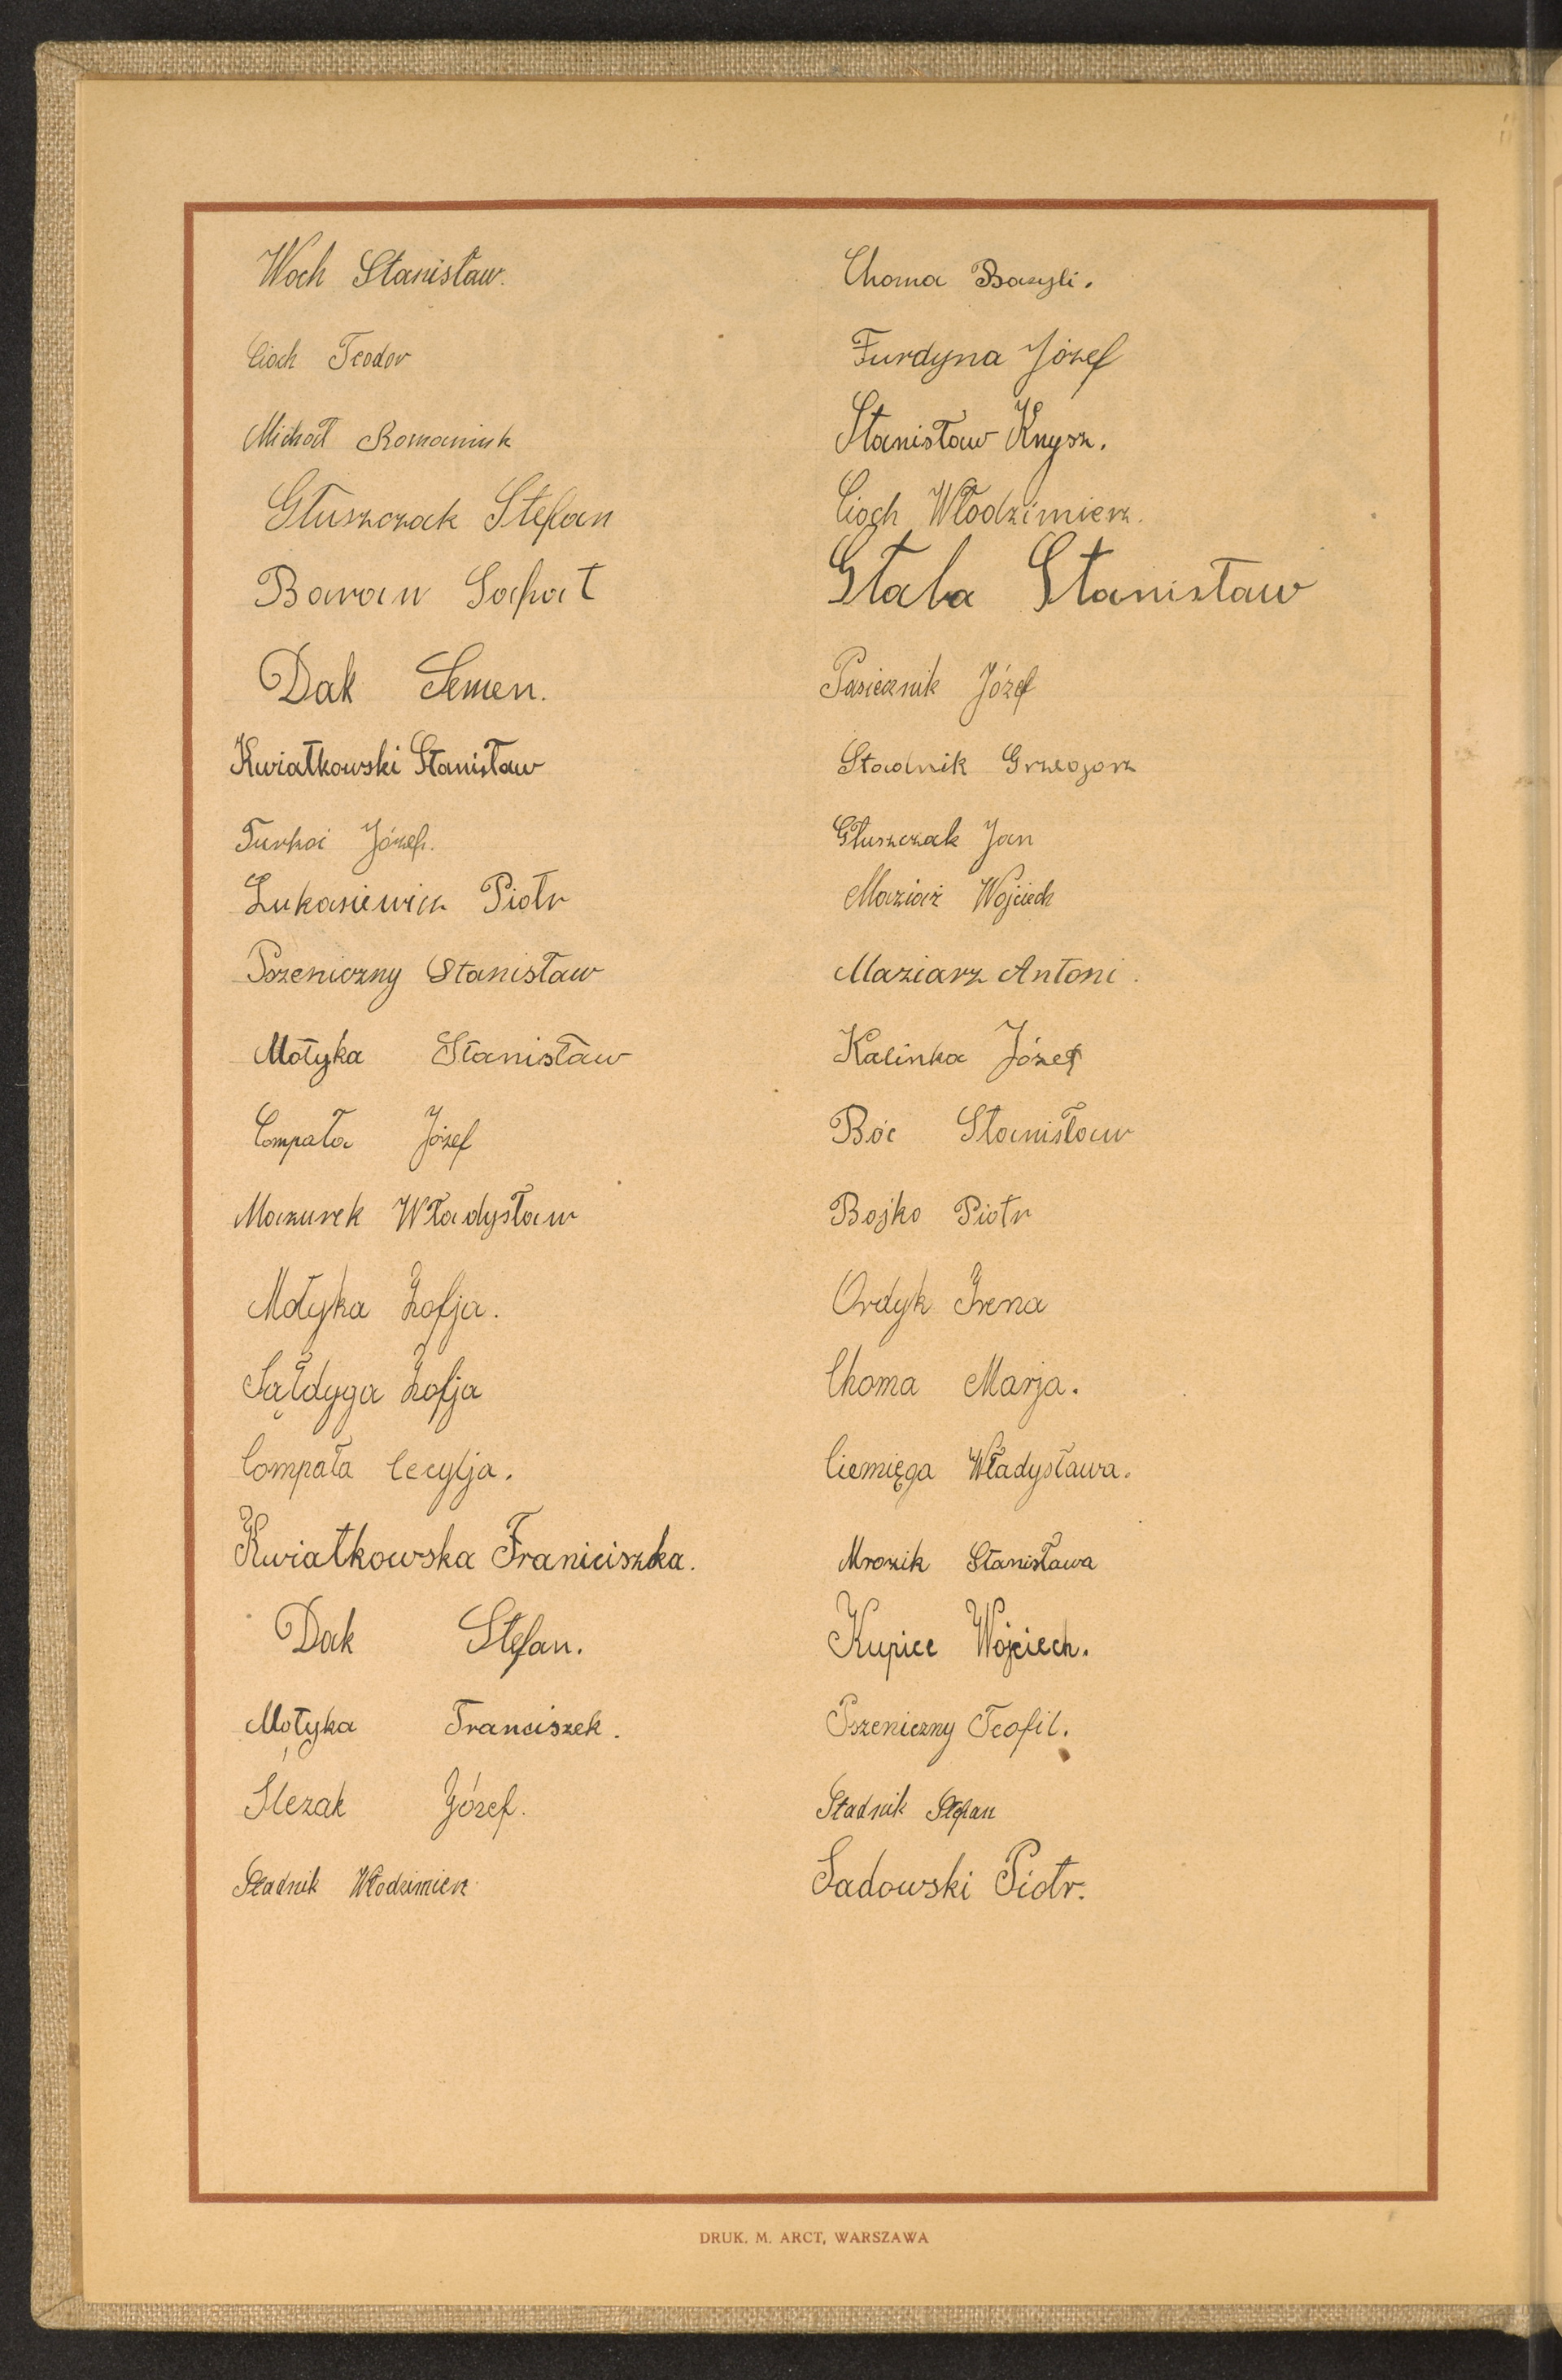 Woch Stanisław.
Cioch Teodor
Michał Romaniuk
Głuszczak Stefan
Baran Sofrat
Dak Semen.
Kwiatkowski Stanisław
Józef.
Łukasiewicz Piotr
Pszeniczny Stanisław
Motyka Stanisław
Compała Józef
Mazurek Władysław
Motyka Zofja.
Sałdyga Zofja
Compała Cecylja.
Kwiatkowska Franiciszka.
Dak Stefan.
Motyka Franciszek.
Slezak Józef.
Stadnik Włodzimierz
Choma Bazyli.
Furdyna Józef
Stanisław Knysz.
Cioch Włodzimierz.
Stala Stanisław
Pasiecznik Józef
Stadnik Grzegorz
Głuszczak Jan
Maziaż Wojciech
Maziarz Antoni.
Kalinka Józef
Bóc Stanisław
Bojko Piotr
Ordyk Irena
Choma Marja.
Ciemięga Władysława.
Mrozik Stanisława
Kupiec Wojciech.
Pszeniczny Teofil.
Stadnik Stefan
Sadowski Piotr.
DRUK. M. ARCT, WARSZAWA